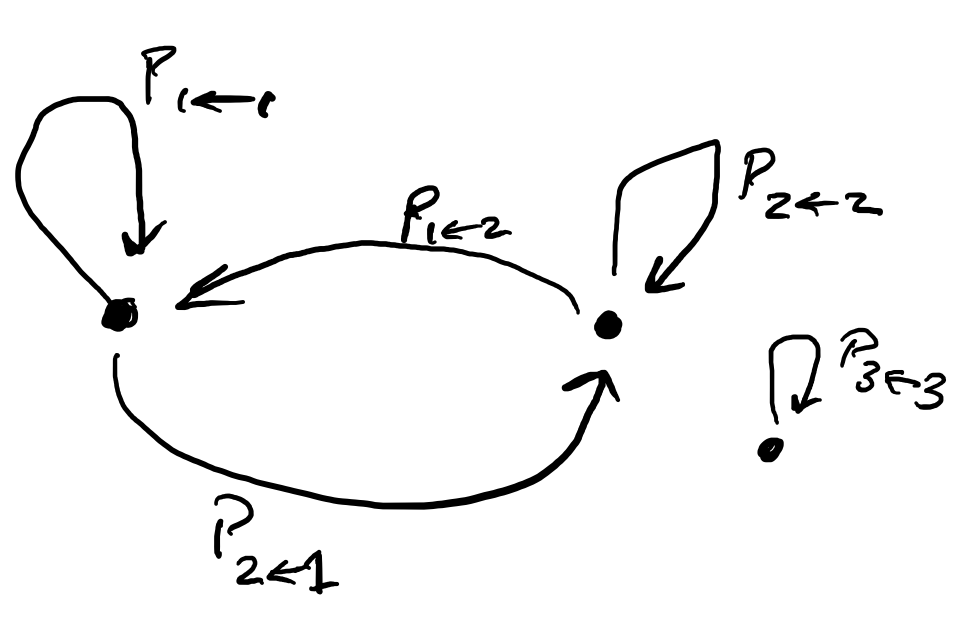 P1←1
P1←2
P2←2
P3←3
P2←1